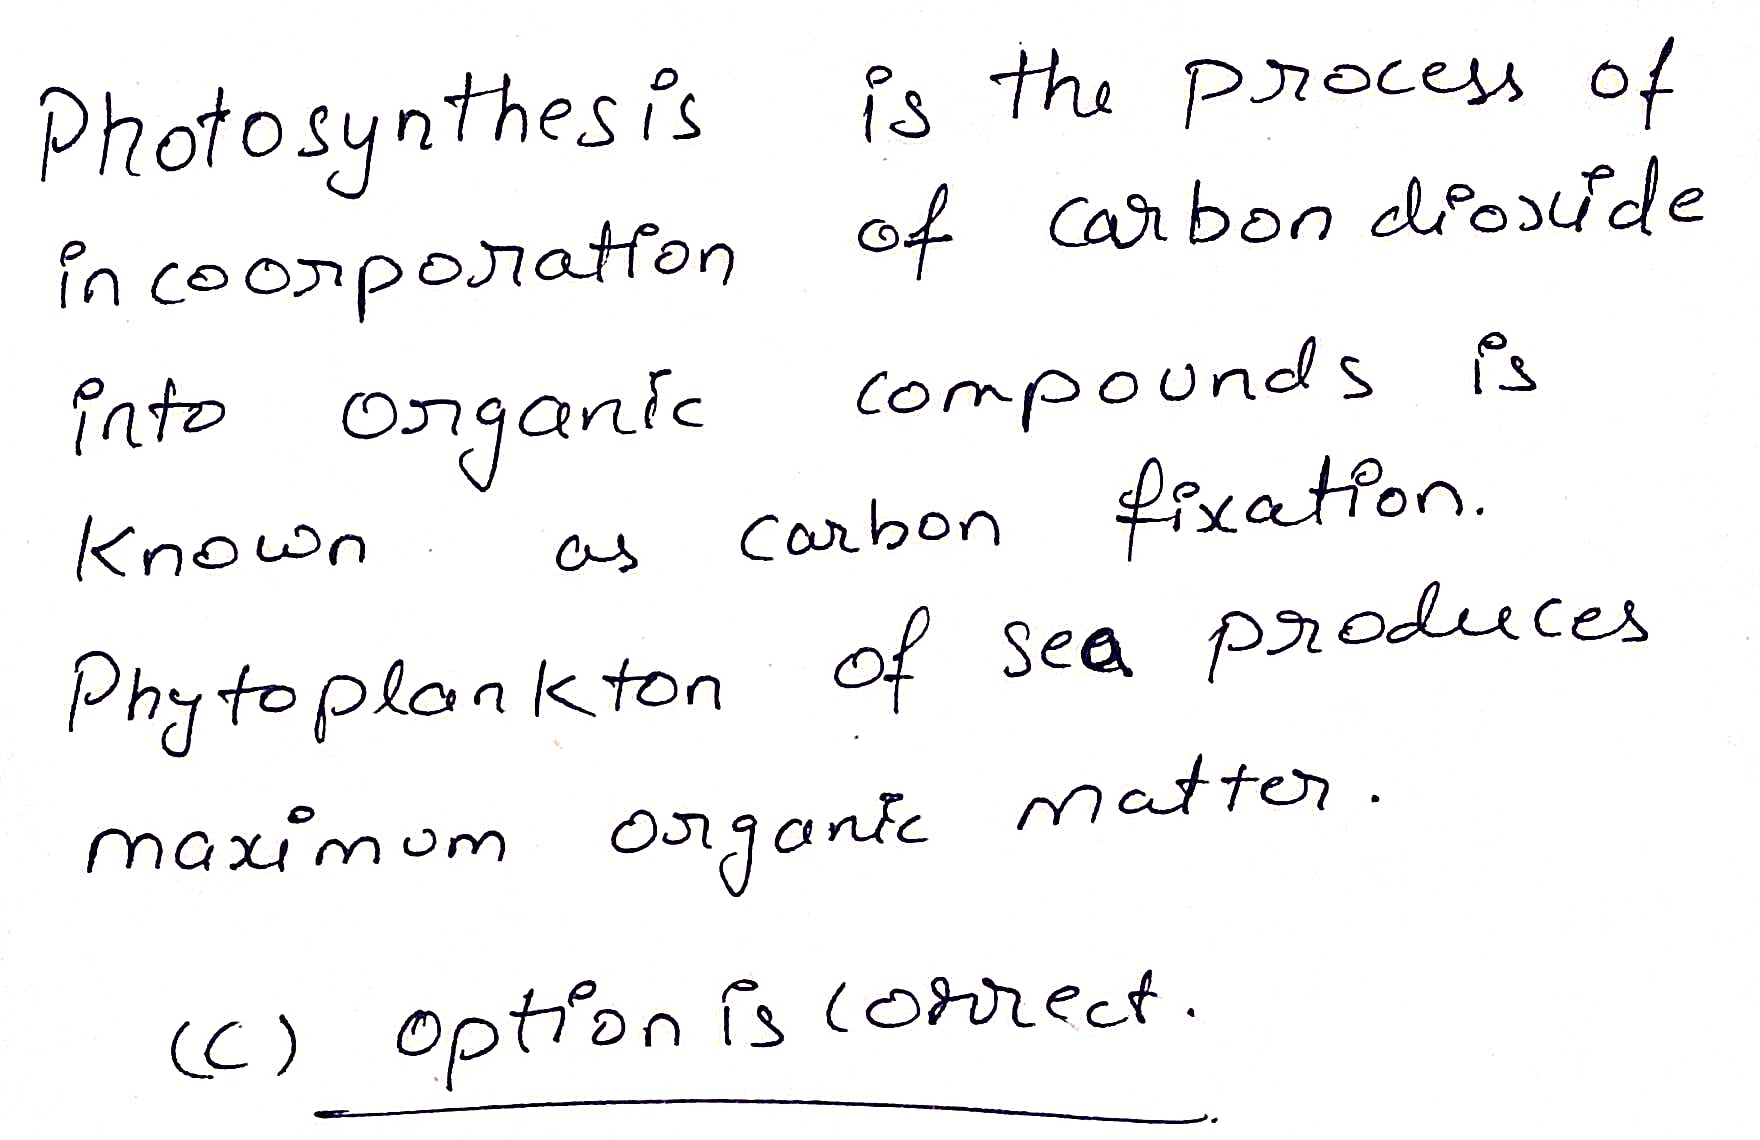 Photosynthesis is the process of
incoorporation of carbon dioxide
into organic compounds is
known as carbon fixation.
Phytoplankton of sea produces
maximum organic matter.
(C) option is correct.